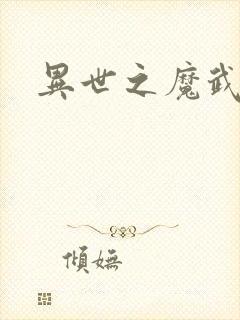 異世之魔武
傾嫵